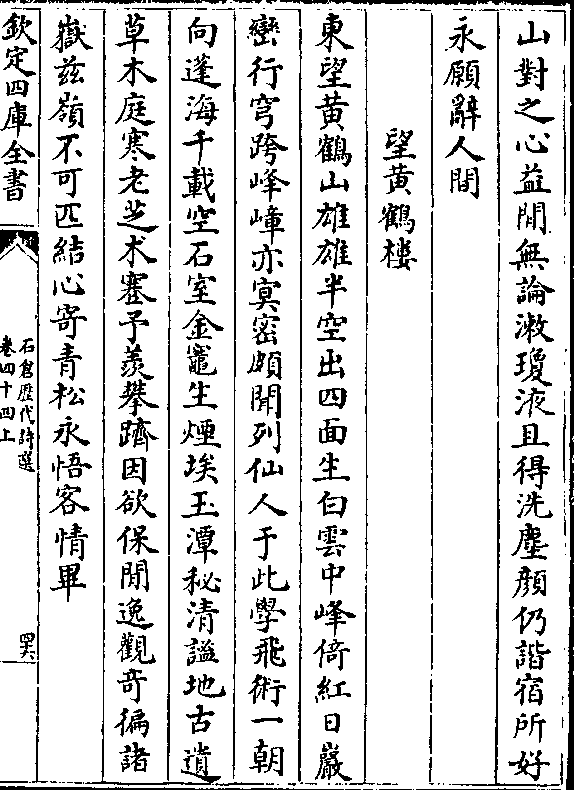 山對之心益閒無論漱瓊液且得洗塵顔仍諧宿所好
永願辭人間
望黄鶴樓
東望黄鶴山雄雄半空出四面生白雲中峰倚紅日巖
巒行穹跨峰嶂亦冥密頗聞列仙人于此學飛術一朝
向蓬海千載空石室金竈生煙埃玉潭秘清謐地古遺
草木庭寒老芝术蹇予羡攀躋因欲保閒逸觀竒徧諸
嶽兹嶺不可匹結心寄青松永悟客情畢
欽定四庫全書
石倉歴代詩選
卷四十四上